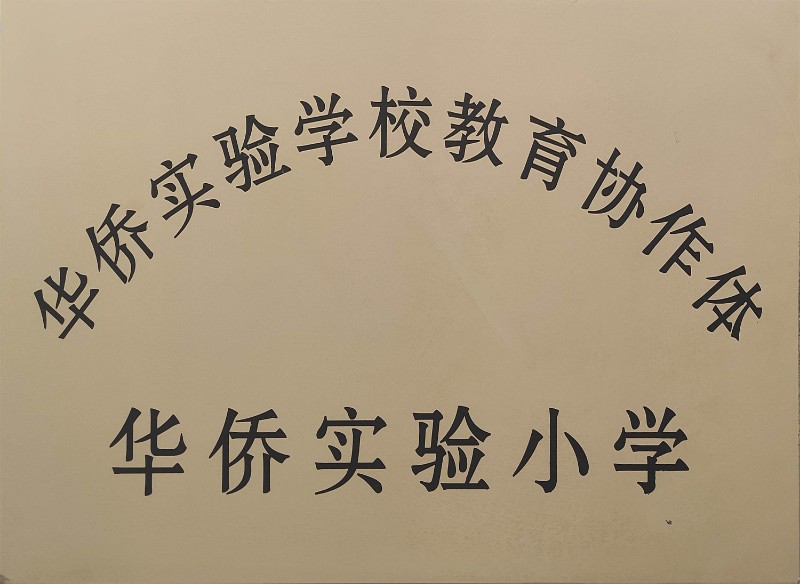 华侨实验学校教育协作体
华侨实验小学